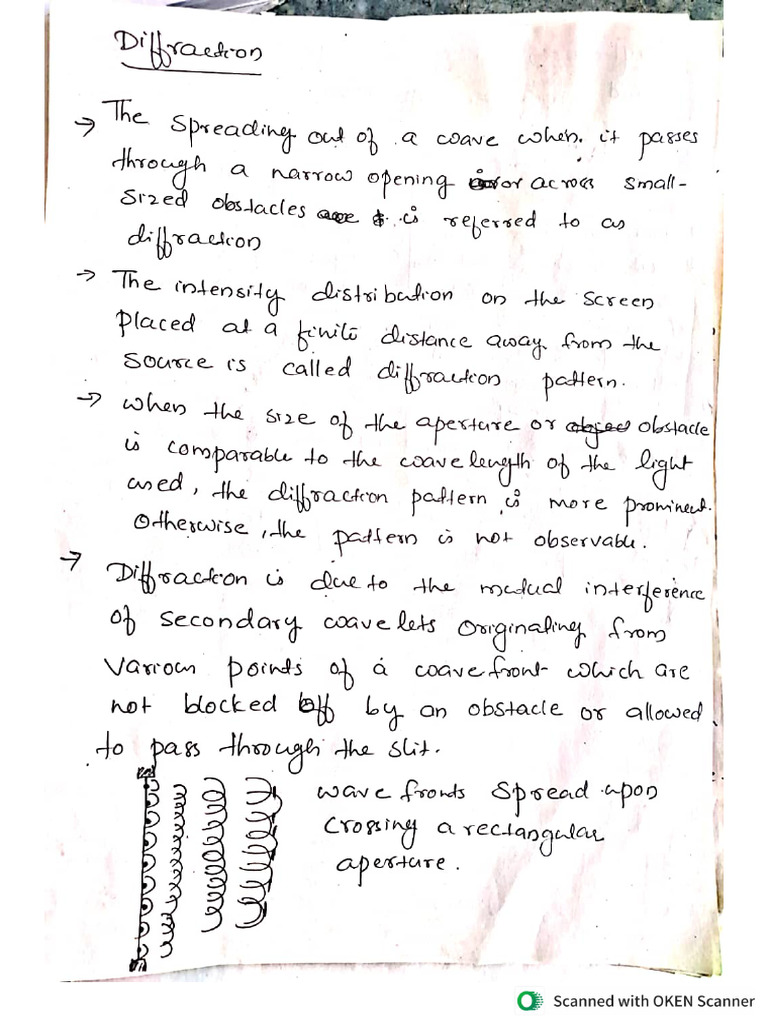 Diffraction
→ The Spreading out of a wave when. it passes
through a narrow opening or across small-
sized obstacles is referred to as
diffraction
→ The intensity distribution on the screen
placed at a finite distance away from the
source is called diffraction pattern.
→ when the size of the aperture or obstacle
is comparable to the wavelength of the light
used, the diffraction pattern is more prominent.
Otherwise, the pattern is not observable.
→ Diffraction is due to the mutual interference
of secondary wavelets originating from
various points of a wavefront which are
not blocked off by an obstacle or allowed
to pass through the slit.
wave fronts spread upon
crossing a rectangular
aperture.
Scanned with OKEN Scanner